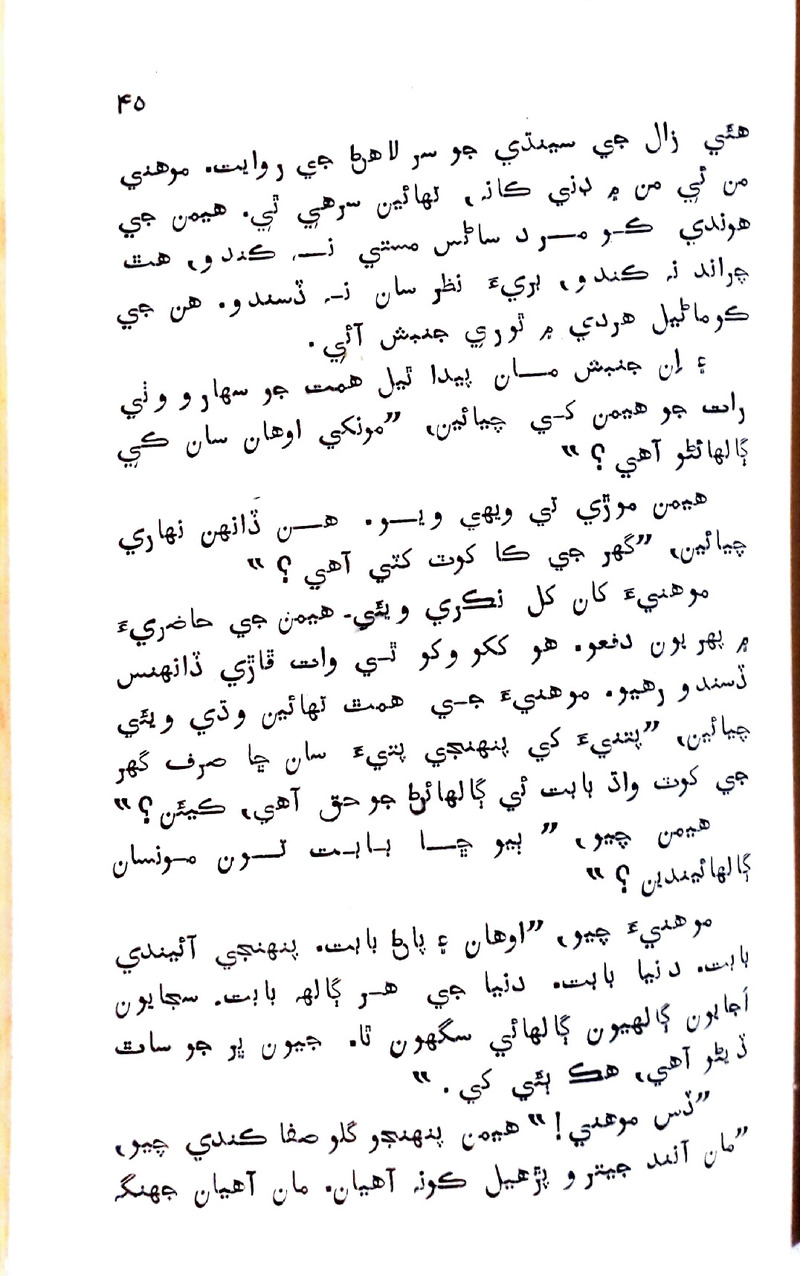 ۴۵
هئي زال جي سينڌي جو سر لاهڻ جي روايت. موهني
من ئي من ۾ ڊني ڪانہ، تهائين سرهي ٿي. هيمن جي
هوندي ڪو مرد ساڻس مستي نہ ڪندو، هٿ
چراند نہ ڪندو، بريءَ نظر سان نہ ڏسندو. هن جي
ڪوماڻيل هردي ۾ ٿوري جنبش آئي.
۽ اِن جنبش مان پيدا ٿيل همت جو سهارو وٺي
رات جو هيمن کي چيائين، ”مونکي اوهان سان ڪي
ڳالهائڻو آهي؟“
هيمن موڙي تي ويهي ويو. هن ڏانهن نهاري
چيائين، ”گهر جي ڪا کوٽ کٽي آهي؟“
موهنيءَ کان کل نڪري ويئي. هيمن جي حاضريءَ
۾ پهريون دفعو. هو ککو وکو ٿي وات ڦاڙي ڏانهنس
ڏسندو رهيو. موهنيءَ جي همت تهائين وڌي ويئي
چيائين، ”پتنيءَ کي پنهنجي پتيءَ سان ڇا صرف گهر
جي کوٽ واڌ بابت ئي ڳالهائڻ جو حق آهي، ڪيئن؟“
هيمن چيو، ”ٻيو ڇا بابت تون مونسان
ڳالهائيندين؟“
موهنيءَ چيو، ”اوهان ۽ پاڻ بابت. پنهنجي آئيندي
بابت. دنيا بابت. دنيا جي هر ڳالهہ بابت. سڄايون
اَجايون ڳالهيون ڳالهائي سگهون ٿا. جيون ڀر جو ساٿ
ڏيڻو آهي، هڪ ٻئي کي.“
”ڏس موهني!“ هيمن پنهنجو گلو صفا ڪندي چيو،
”مان آنند جيترو پڙهيل ڪونہ آهيان. مان آهيان جهنگہ